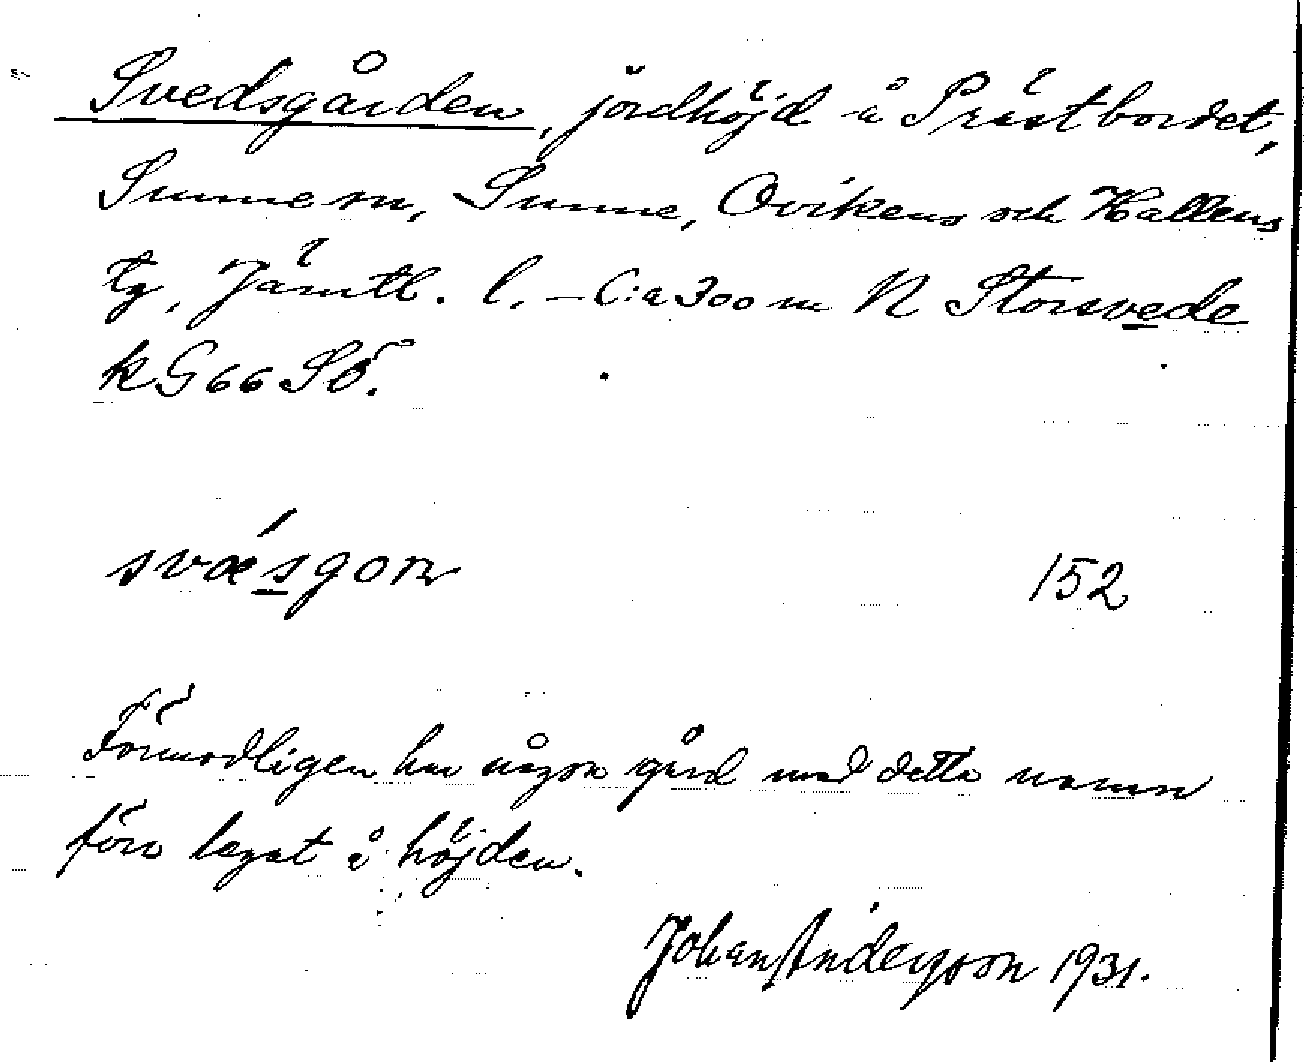 Svedsgården, jordhöjd å Prästbordet,
Sunne sn, Sunne, Ovikens och Hallens
tg, Jämtl. l. – C:a 300 m N Storsvede
k G 66 SÖ.
svæ´sgon
152
Förmodligen har någon gård med detta namn
förr legat å höjden.
Johan Andersson 1931.